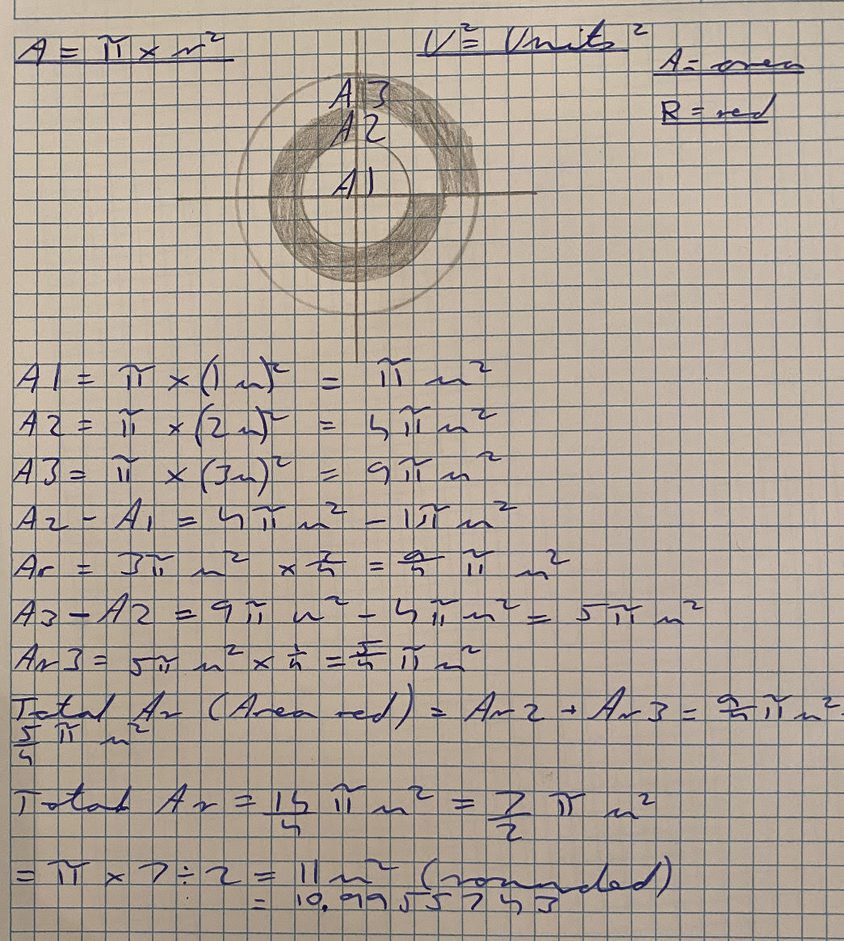 A = π × r²
U² = Units²
A = area
R = red
A3
A2
A1
A1 = π × (1u)² = π u²
A2 = π × (2u)² = 4π u²
A3 = π × (3u)² = 9π u²
A2 - A1 = 4π u² - 1π u²
Ar = 3π u² × 3/4 = 9/4 π u²
A3 - A2 = 9π u² - 4π u² = 5π u²
Ar3 = 5π u² × 1/4 = 5/4 π u²
Total Ar (Area red) = Ar2 + Ar3 = 9/4 π u² +
5/4 π u²
Total Ar = 14/4 π u² = 7/2 π u²
= π × 7 ÷ 2 = 11 u² (rounded)
= 10.9955743